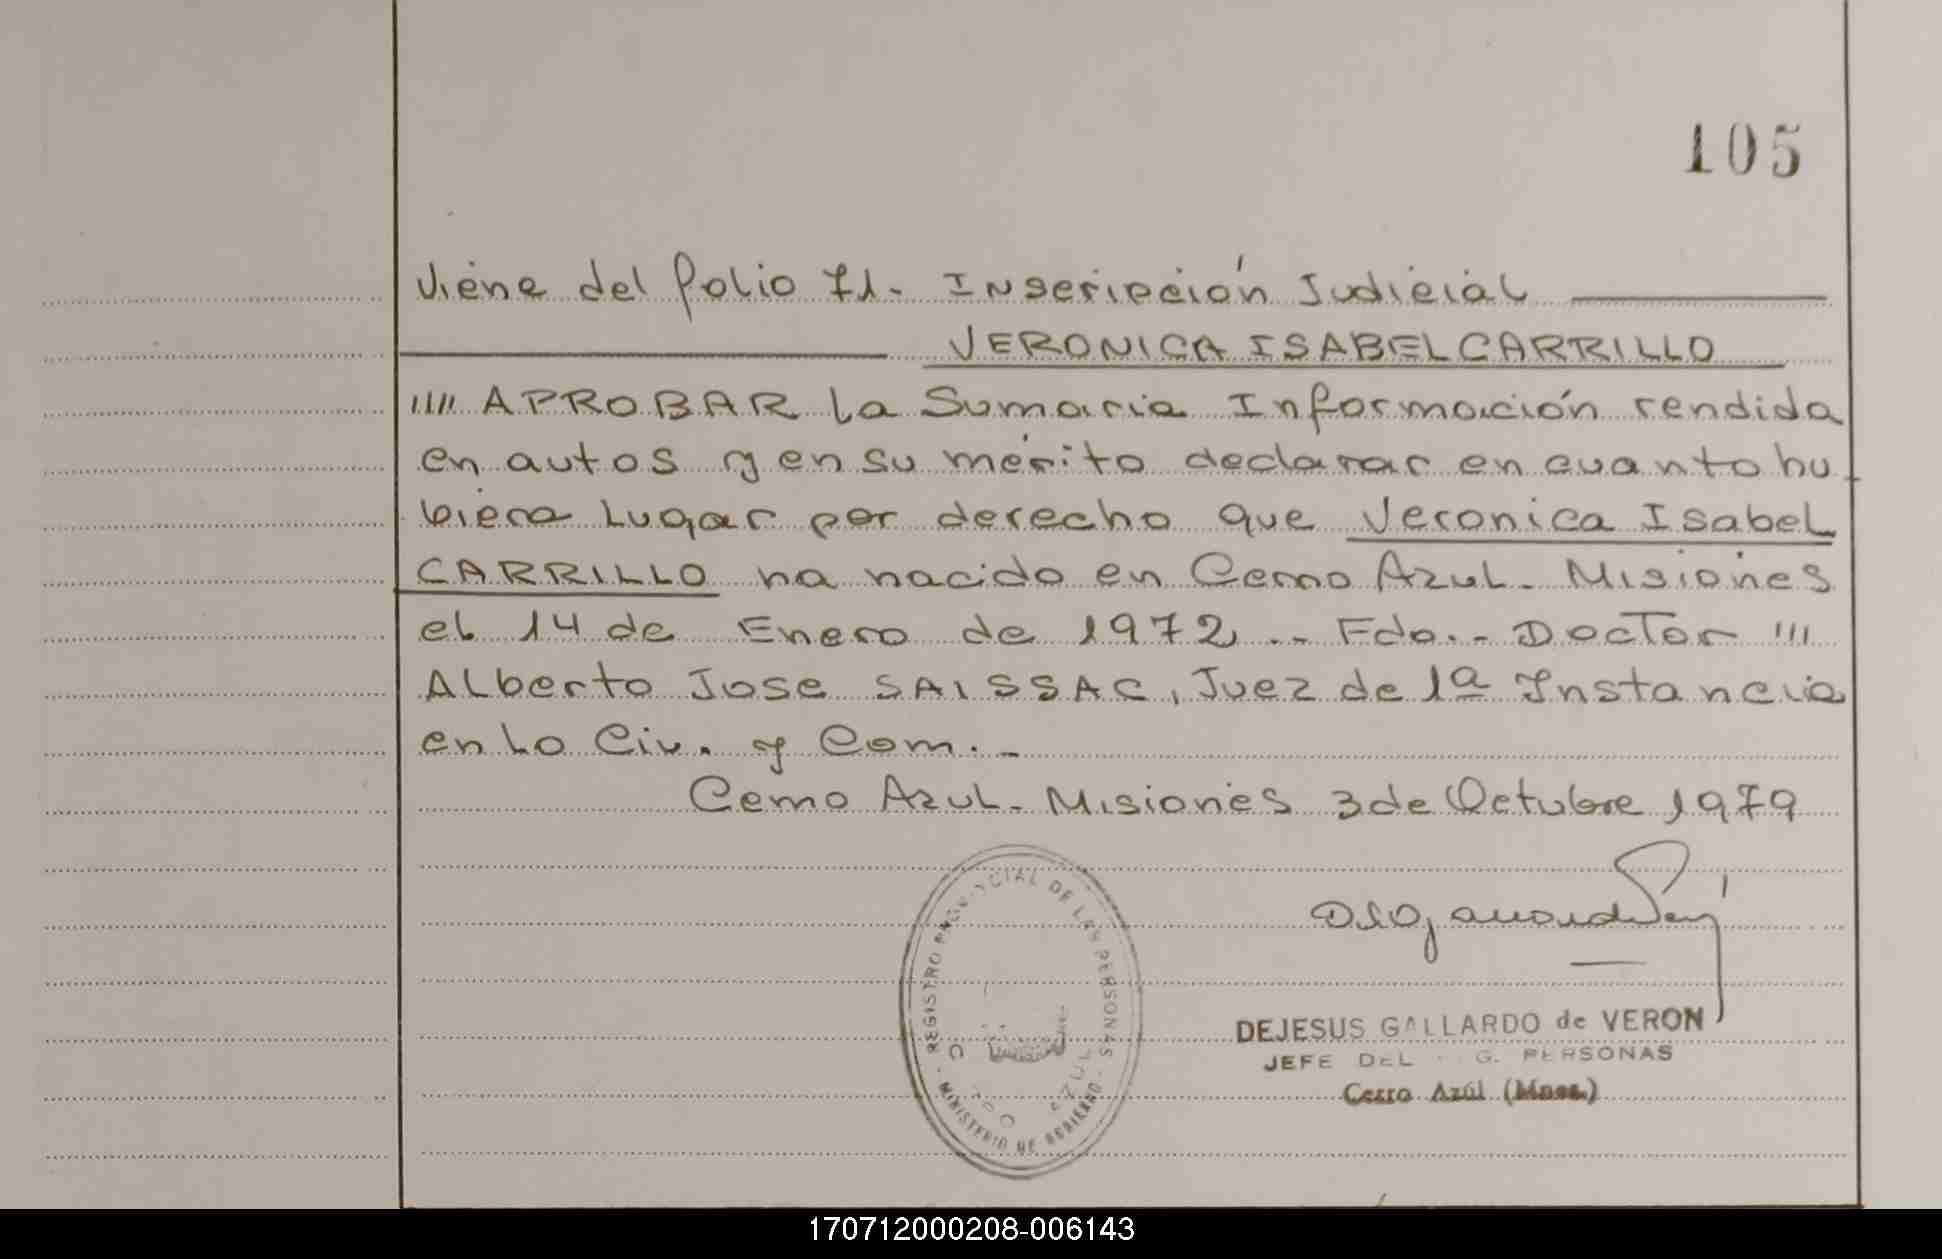 105
Viene del folio 71- Inscripción Judicial
VERONICA ISABEL CARRILLO
///// APROBAR la Sumaria Información rendida
en autos y en su mérito declarar en cuanto hu
biera lugar por derecho que Veronica Isabel
CARRILLO ha nacido en Cerro Azul- Misiones
el 14 de Enero de 1972 .- Fdo.- Doctor ///
Alberto Jose SAISSAC, Juez de 1ª Instancia
en lo Civ. y Com.-
Cerro Azul- Misiones 3 de Octubre 1979
REGISTRO PROVINCIAL DE LAS PERSONAS
- MINISTERIO DE GOBIERNO -
AZUL
DEJESUS GALLARDO de VERON
JEFE DEL G. PERSONAS
Cerro Azúl (Mnes.)
170712000208-006143